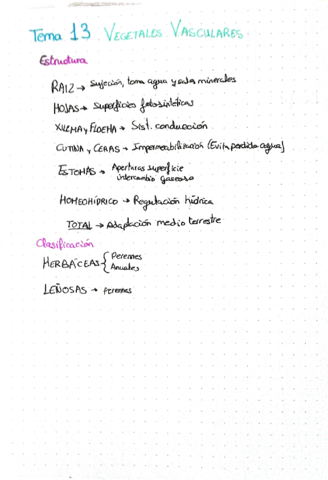 Tema 13 VEGETALES VASCULARES.
Estructura
RAIZ → Sujeción, toma agua y sales minerales
HOJAS → Superficies fotosintéticas
XILEMA y FLOEMA → Sist. conducción
CUTINA y CERAS → Impermeabilización (Evita perdida agua)
ESTOMAS → Aperturas superficie
intercambio gaseoso
HOMEOHÍDRICO → Regulación hídrica
TOTAL → Adaptación medio terrestre
Clasificación
HERBÁCEAS { Perennes
Anuales
LEÑOSAS → Perennes